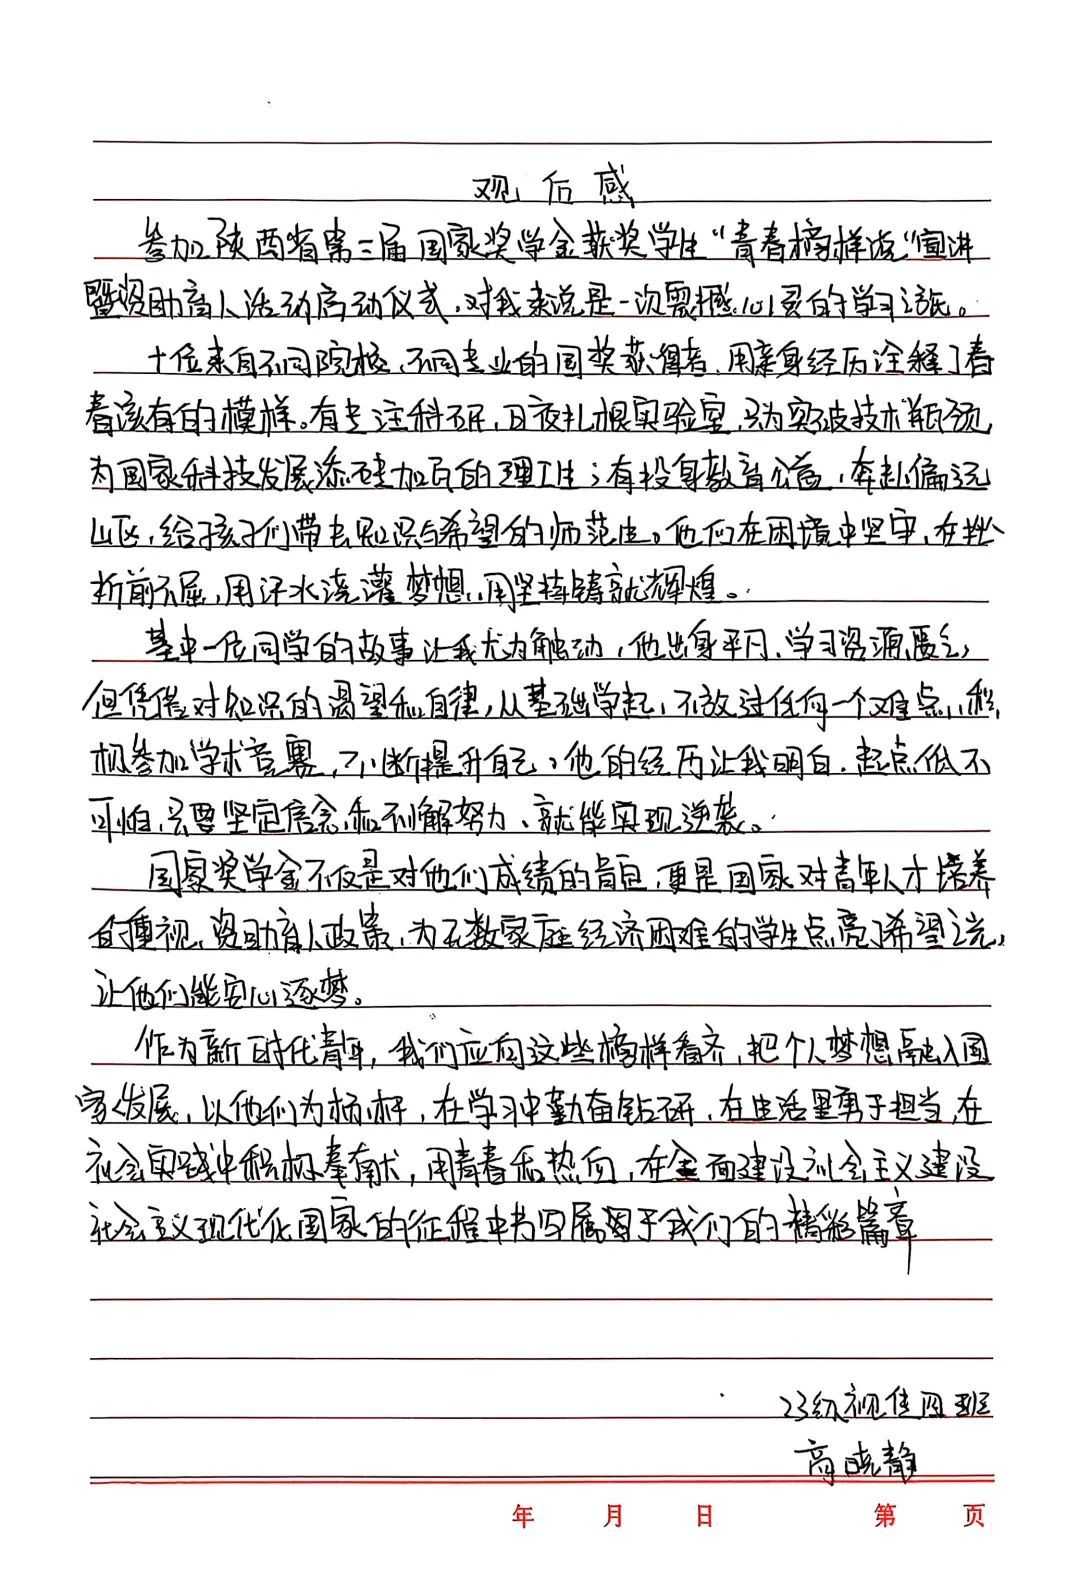 观后感
参加陕西省第三届国家奖学金获奖学生“青春榜样说”宣讲
暨资助育人活动启动仪式，对我来说是一次震撼心灵的学习之旅。
十位来自不同院校、不同专业的国奖获得者，用亲身经历诠释了青
春该有的模样。有专注科研，日夜扎根实验室，只为突破技术瓶颈，
为国家科技发展添砖加瓦的理工生；有投身教育公益，奔赴偏远
山区，给孩子们带去知识与希望的师范生。他们在困境中坚守，在挫
折前不屈，用汗水浇灌梦想，用坚持铸就辉煌。
其中一位同学的故事让我尤为触动，他出身平凡、学习资源匮乏，
但凭借对知识的渴望和自律，从基础学起，不放过任何一个难点，积
极参加学术竞赛，不断提升自己，他的经历让我明白，起点低不
可怕，只要坚定信念和不懈努力、就能实现逆袭。
国家奖学金不仅是对他们成绩的肯定，更是国家对青年人才培养
的重视，资助育人政策，为无数家庭经济困难的学生点亮了希望之光，
让他们能安心逐梦。
作为新时代青年，我们应向这些榜样看齐，把个人梦想融入国
家发展，以他们为标杆，在学习中勤奋钻研，在生活里勇于担当，在
社会实践中积极奉献，用青春和热血，在全面建设社会主义建设
社会主义现代化国家的征程中书写属于我们的精彩篇章
23级视传四班
高晓静
年 月 日 第 页